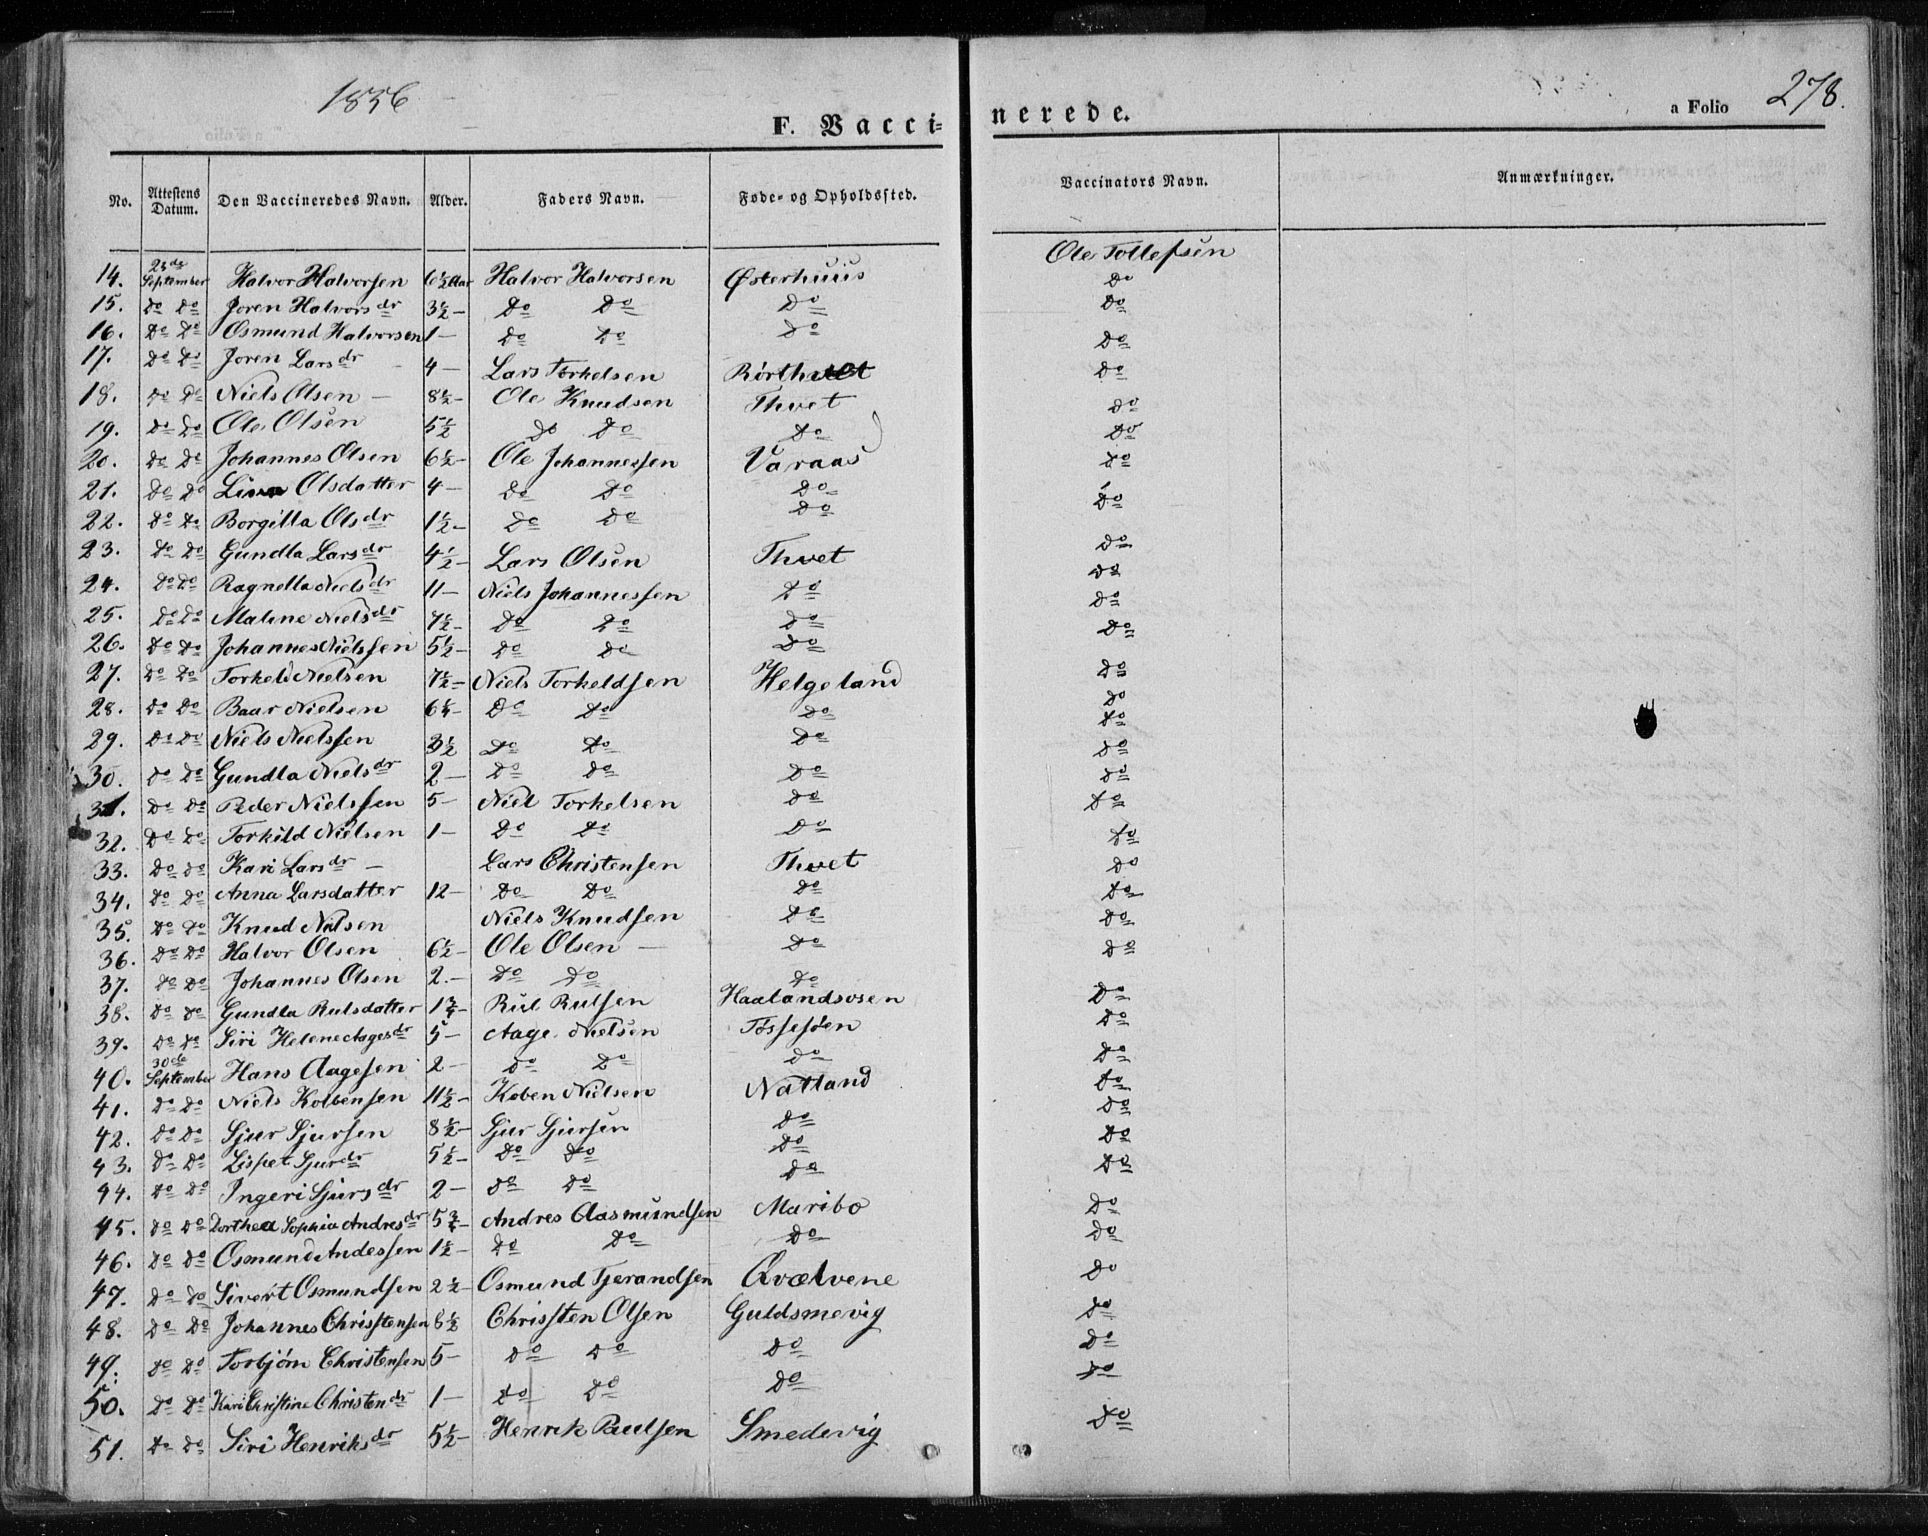 1856
278.
F. Vaccinerede.
a Folio
No. Attestens Datum. Den Vaccineredes Navn. Alder. Faders Navn. Føde- og Opholdssted. Vaccinators Navn. Anmærkninger.
14. September Halvor Halvorsen 6½ Aar Halvor Halvorsen Østerhuus Ole Tollefsen
15. Do Do Joren Halvorsdr 3½ - Do Do Do Do
16. Do Do Osmund Halvorsen 1 - Do Do Do Do
17. Do Do Joren Larsdr - 4 - Lars Torkelsen Rørthvet Do
18. Do Do Niels Olsen - 8½ - Ole Knudsen Thvet Do
19. Do Do Ole Olsen 5½ Do Do Do Do
20. Do Do Johannes Olsen 6½ - Ole Johannessen Varaas Do
21. Do Do Lina Olsdatter 4 - Do Do Do Do
22. Do Do Borgilla Olsdr 1½ - Do Do Do Do
23. Do Do Gundla Larsdr 4½ - Lars Olsen Thvet Do
24. Do Do Ragnella Nielsdr 11 - Niels Johannessen Do Do
25. Do Do Maline Nielsdr 7½ - Do Do Do Do
26. Do Do Johannes Nielssen 5½ - Do Do Do Do
27. Do Do Torkeld Nielsen 7½ - Niels Torkeldsen Helgeland Do
28. Do Do Baar Nielsen Do Do Do Do
29. Do Do Niels Nielssen 3½ Do Do Do Do
30. Do Do Gundla Nielsdr 2 - Do Do Do Do
31. Do Do Peder Nielssen 5 - Niel Torkelsen Do Do
32. Do Do Torkild Nielsen 1 - Do Do Do Do
33. Do Do Kari Larsdr - Lars Christensen Thvet Do
34. Do Do Anna Larsdatter 12 - Do Do Do Do
35. Do Do Knud Nilsen Niels Knudsen Do Do
36. Do Do Halvor Olsen 6½ - Ole Olsen - Do Do
37. Do Do Johannes Olsen 2. - Do Do Do Do
38. Do Do Gundla Rulsdatter Rul Rulsen Haalandsosen Do
39. Do Do Siri Helene Aagesdr 5 - Aage Nielsen Tøssesøen Do
40. 30de September Hans Aagesen 2 - Do Do Do Do
41. Do Do Niels Kolbensen 11½ - Koben Nielsen Natland Do
42. Do Do Sjur Sjursen 8½ - Sjur Sjursen Do Do
43. Do Do Lispet Sjurdr 5½ - Do Do Do Do
44. Do Do Ingeri Sjursdr 2 - Do Do Do Do
45. Do Do Dorthea Sophia Andresdr 5¾ - Andres Aasmundsen Maribo Do
46. Do Do Osmund Andessen 1½ - Do Do Do Do
47. Do Do Sivert Osmundsen 2½ - Osmund Tjerandsen Qvælvene Do
48. Do Do Johannes Christensen 8½ Christen Olsen Guldsmevig Do
49. Do Do Torbjørn Christensen 5 - Do Do Do Do
50. Do Do Kari Christine Christendr 1 - Do Do Do Do
51. Do Do Siri Henriksdr 5½ - Henrik Paulsen Smedevig Do